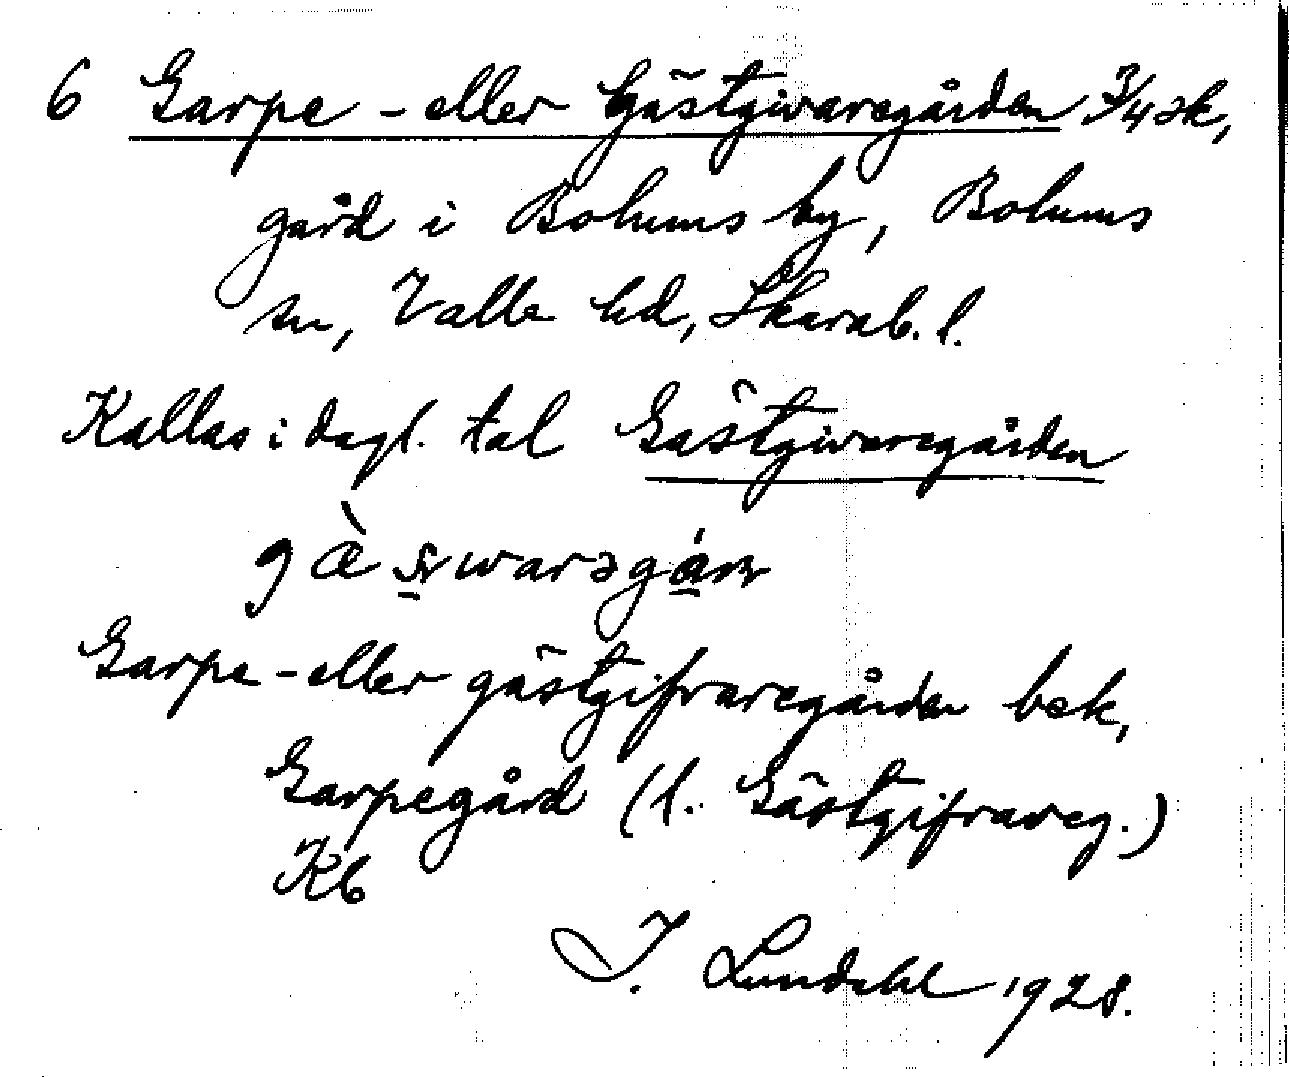 6 Garpe- eller Gästgivaregården 3/4 sk,
gård i Bolums by, Bolums
sn, Valle hd, Skarab. l.
Kallas i dagl. tal Gästgivaregården
Garpe- eller gästgifvaregården bek,
Garpegård (l. Gästgifvareg.)
Kb
I. Lundahl 1928.